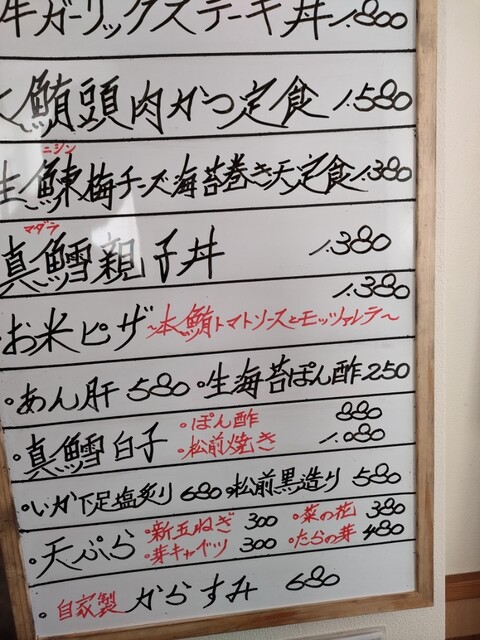 牛ガーリックステーキ丼 1.800
鮪頭肉かつ定食 1.580
ニシン
生鰊梅チーズ海苔巻き天定食 1.380
マダラ
真鱈親子丼 1.380
・お米ピザ ~本鮪トマトソースとモッツァレラ~ 1.380
・あん肝 580 ・生海苔ぽん酢 250
・真鱈白子 ・ぽん酢 880
・松前焼き 1.080
・いか下足塩炙り 680 ・松前黒造り 580
・天ぷら ・新玉ねぎ 300 ・菜の花 380
・芽キャベツ 300 ・たらの芽 480
。自家製 からすみ 680